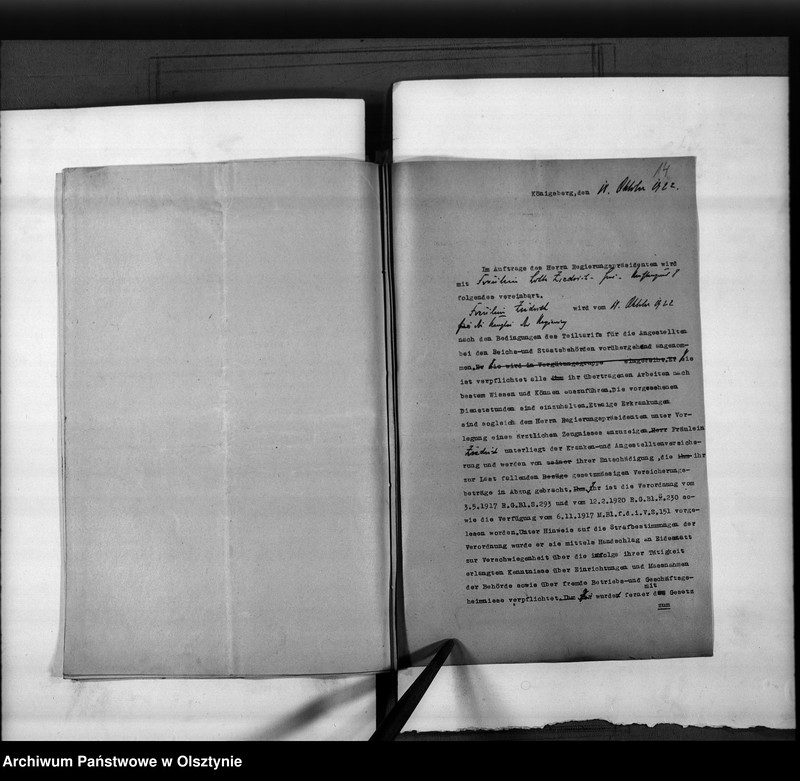 14
Königsberg, den 11. Oktober 1922.
Im Auftrage des Herrn Regierungspräsidenten wird
mit Fräulein Lotte
folgendes vereinbart.
Fräulein wird vom 11. Oktober 1922
für die Kanzlei der Regierung
nach den Bedingungen des Teiltarifs für die Angestellten
bei den Reichs-und Staatsbehörden vorübergehend angenom-
men. Er sie wird in Vergütungsgruppe eingereiht. Er Sie
ist verpflichtet alle ihm ihr übertragenen Arbeiten nach
bestem Wissen und Können auszuführen. Die vorgesehenen
Dienststunden sind einzuhalten. Etwaige Erkrankungen
sind sogleich dem Herrn Regierungspräsidenten unter Vor-
legung eines ärztlichen Zeugnisses anzuzeigen. Herr Fräulein
unterliegt der Kranken-und Angestelltenversiche-
rung und werden von seiner ihrer Entschädigung, die ihm ihr
zur Last fallenden Bezüge gesetzmässigen Versicherungs-
beträge in Abzug gebracht. Ihm Ihr ist die Verordnung vom
3.5.1917 R.G.Bl.S.293 und vom 12.2.1920 R.G.Bl.S.230 so-
wie die Verfügung vom 6.11.1917 M.Bl.f.d.i.V.S.151 vorge-
lesen worden. Unter Hinweis auf die Strafbestimmungen der
Verordnung wurde er sie mittels Handschlag an Eidesstatt
zur Verschwiegenheit über die infolge ihrer Tätigkeit
erlangten Kenntnisse über Einrichtungen und Massnahmen
der Behörde sowie über fremde Betriebs-und Geschäftsge-
mit
heimnisse verpflichtet. Ihm Ihr wurde ferner Gesetz
zum
Archiwum Państwowe w Olsztynie